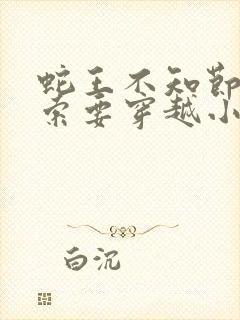 蛇王不知节
索要穿越小
白沉